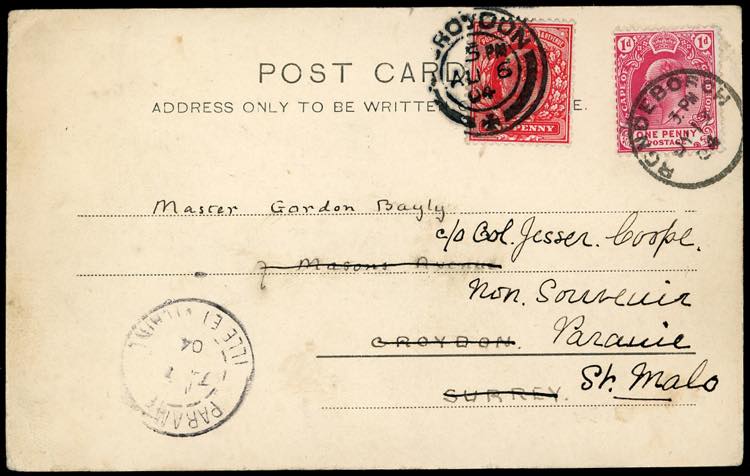 POST CARD
ADDRESS ONLY TO BE WRITTEN E.
CROYDON
5 PM
AU 6
04
PENNY
1d 1d
CAPE OF HOPE
ONE PENNY
POSTAGE
RONDEBOSCH
3 PM
04
Master Gordon Bayly
c/o Col. Jesser. Coope.
7 Masons Avenue
Mon. Souvenir
CROYDON. Paramé
SURREY. St. Malo
PARAMÉ
04
ILLE ET VILAINE